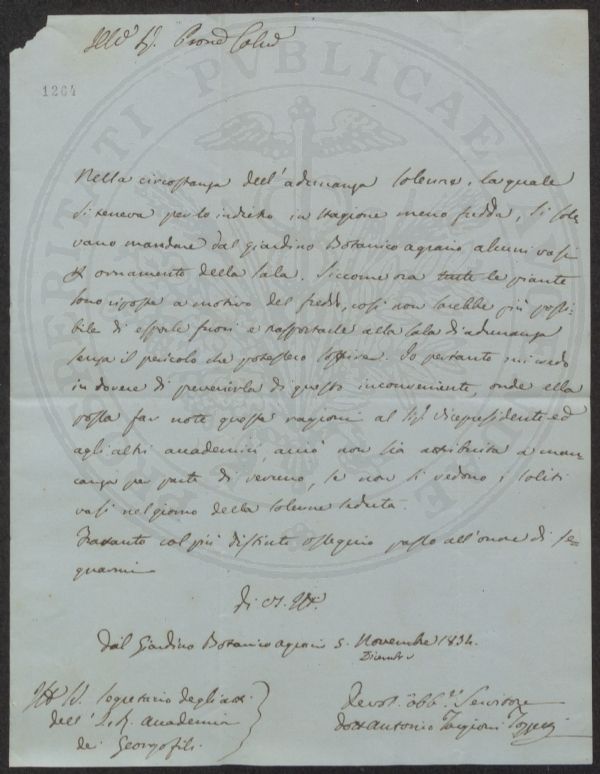 Illo. Sig. Prone Colmo
1264
Nella circostanza dell'adunanza solenne, la quale
si teneva per lo indietro in stagione meno fredda, si sole-
vano mandare dal giardino Botanico agrario alcuni vasi
di ornamento della sala. Siccome ora tutte le piante
sono riposte a motivo del freddo, così non sarebbe più possi-
bile di esporle fuori e trasportarle alla sala d'adunanza
senza il pericolo che potessero soffrire. Io pertanto mi credo
in dovere di prevenirla di questo inconveniente, onde ella
possa far note queste ragioni al Sig. Vicepresidente ed
agli altri accademici, acciò non sia attribuita a man-
canza per parte di veruno, se non si vedono i soliti
vasi nel giorno della solenne seduta.
Frattanto col più distinto ossequio passo all'onore di se-
gnarmi
di VS. Ill.
dal Giardino Botanico agrario 5. Novembre 1834.
Dicembre
Ill. Sig. Segretario degli atti
dell' I. R. Accademia
dei Georgofili.
Devot. Obb. Servitore
Dott Antonio Targioni Tozzetti
PROSPERITATI PUBLICAE AUGENDAE